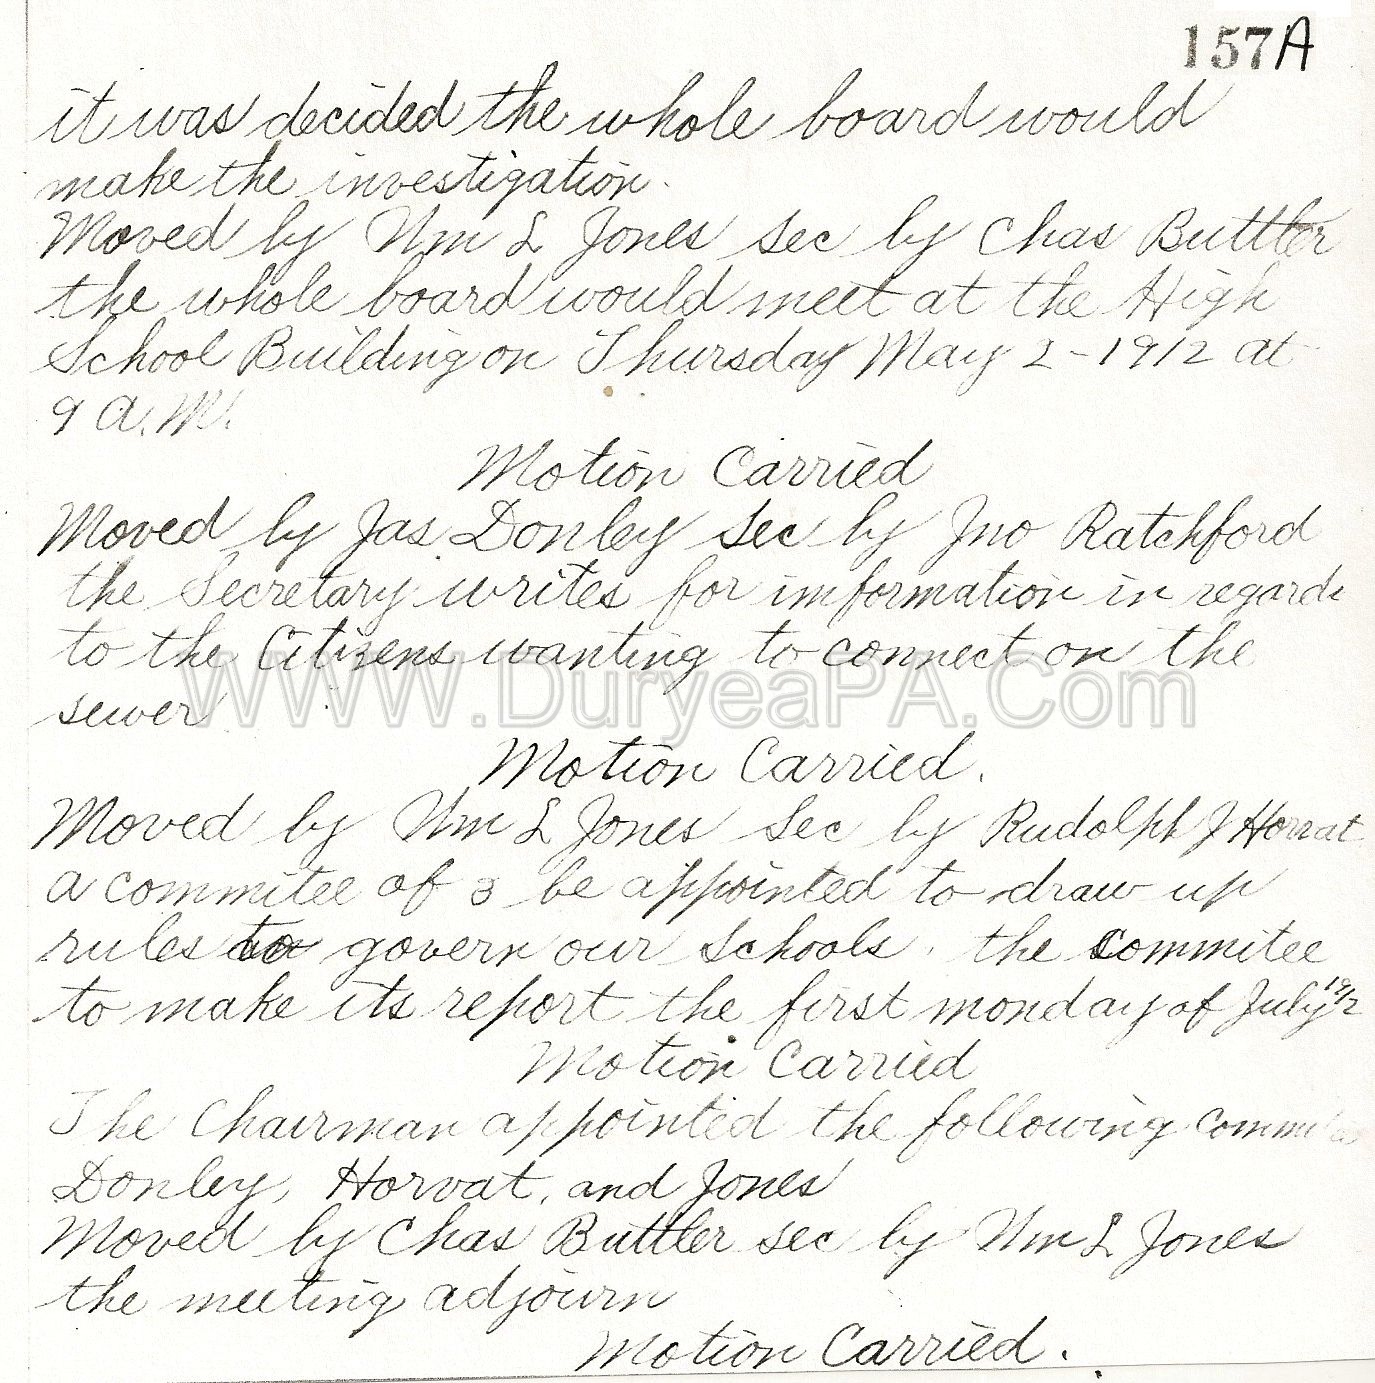 157A
it was decided the whole board would
make the investigation.
Moved by Wm L Jones sec by Chas Buttler
the whole board would meet at the High
School Building on Thursday May 2-1912 at
9 A.M.
Motion Carried
Moved by Jas. Donley sec by Jno Ratchford
the Secretary writes for imformation in regards
to the Citizens wanting to connect on the
sewer
WWW.DuryeaPA.Com
Motion Carried.
Moved by Wm L Jones sec by Rudolph J Horvat
a commitee of 3 be appointed to draw up
rules to govern our schools. the commitee
to make its report the first monday of July 1912
Motion Carried
The Chairman appointed the following
Donley, Horvat, and Jones
Moved by Chas Buttler sec by Wm L Jones
the meeting adjourn
Motion Carried.